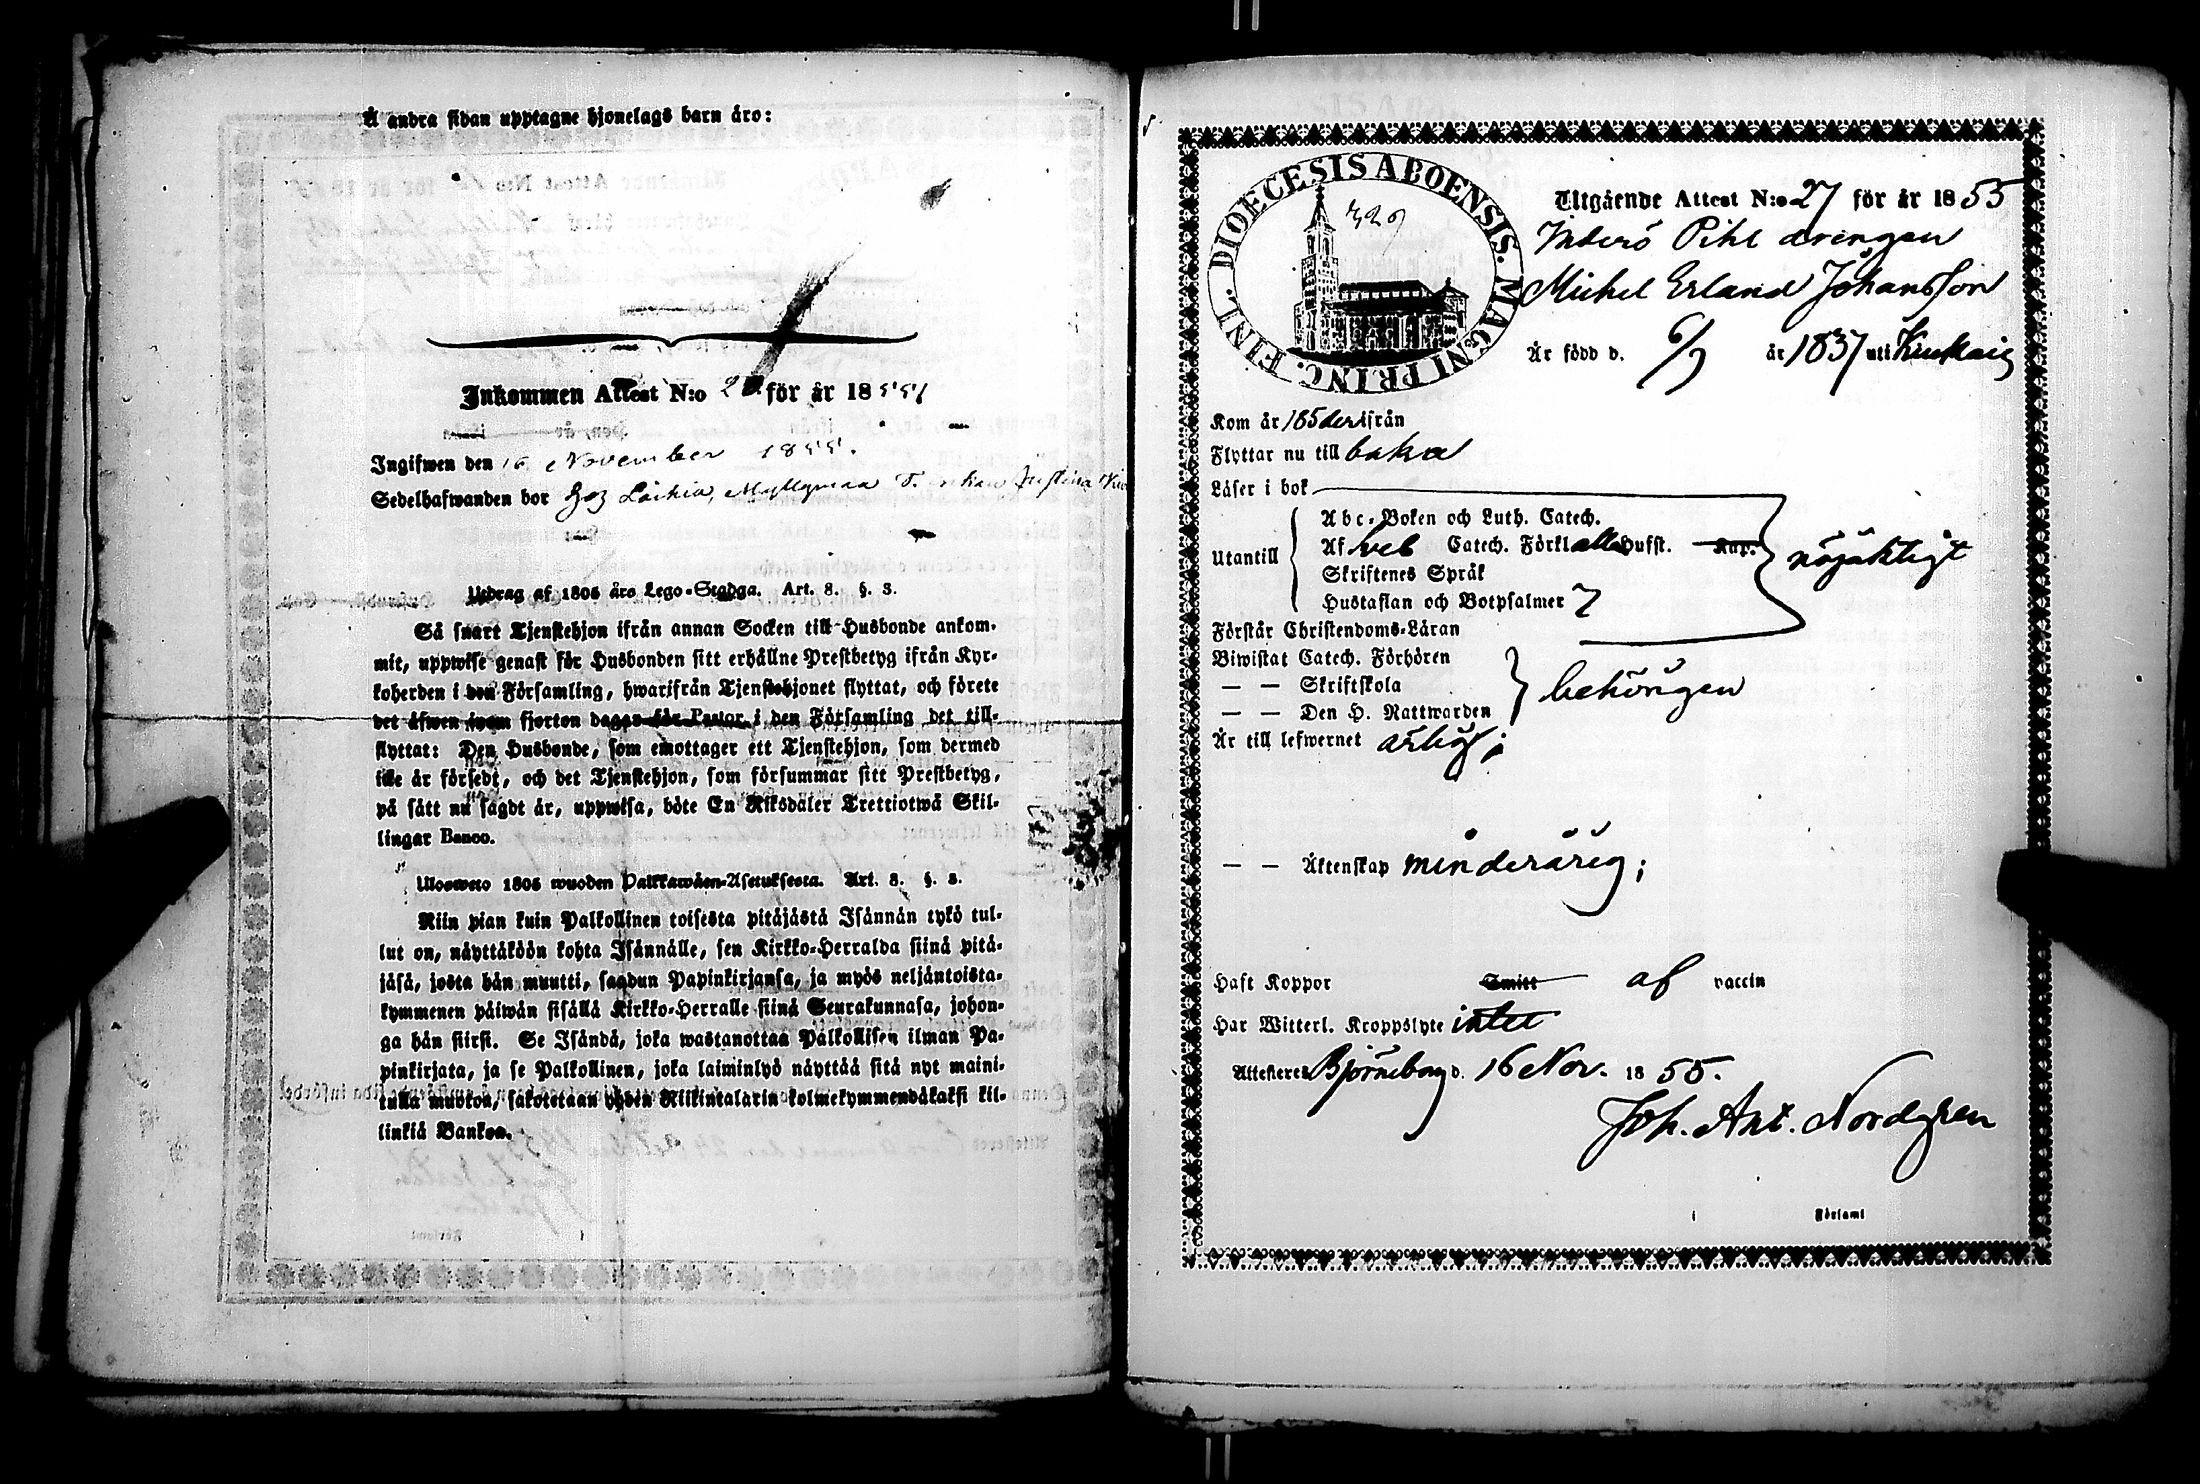 Å andra sidan upptagne hjonelags barn äro:
Inkommen Attest N:o 2 för år 1855
Ingifwen den 16 November 1855.
Sedelhafwanden bor hos
Utdrag af 1805 års Lego-Stadga. Art. 8. §. 3.
Så snart Tjenstehjon ifrån annan Socken till Husbonde ankom-
mit, uppwise genast för Husbonden sitt erhållne Prestbetyg ifrån Kyr-
koherden i den Församling, hwarifrån Tjenstehjonet flyttat, och förete
det äfwen inom fjorton dagar för Pastor i den Församling det till-
flyttat: Den Husbonde, som emottager ett Tjenstehjon, som dermed
icke är försedt, och det Tjenstehjon, som försummar sitt Prestbetyg,
på sätt nu sagdt är, uppwisa, böte En Riksdaler Trettiotwå Skil-
lingar Banco.
Ulosweto 1805 wuoden Palkkawäen-Asetuksesta. Art. 8. §. 3.
Niin pian kuin Palkollinen toisesta pitäjästä Isännän tykö tul-
lut on, näyttäköön kohta Isännälle, sen Kirkko-Herralda siinä pitä-
jäsä, josta hän muutti, saadun Papinkirjansa, ja myös neljäntoista-
kymmenen päiwän sisällä Kirkko-Herralle siinä Seurakunnasa, johon-
ga hän siirsi. Se Isändä, joka wastanottaa Palkollisen ilman Pa-
pinkirjata, ja se Palkollinen, joka laiminlyö näyttää sitä nyt maini-
tulla muoton, sakotetaan yhden Riikintalarin kolmekymmendäkaksi kil-
linkiä Bankoa.
DIOECESIS ABOENSIS. MAGNI PRINC. FINL.
Utgående Attest N:o 27 för år 1855
Inderö Pihl drengen
Michel Erland Johansson
Är född d. 6/7 år 1837 uti
Kom år 185 derifrån
Flyttar nu till baka
Läser i bok
Abc-Boken och Luth. Catech.
Utantill Af Sveb Catech. Förkl. alla Hufst. Kap. nöjaktigt
Skriftenes Språk
Hustaflan och Botpsalmer 7
Förstår Christendoms-Läran
Biwistat Catech. Förhören
— — Skriftskola behörigen
— — Den H. Nattwarden
Är till lefwernet ärlig;
— — Äktenskap minderårig;
Haft Koppor Smitt af vaccin
Har Witterl. Kroppslyte intet
Attesteres Björneborg d. 16 Nov. 1855.
Joh. Ant. Nordgren
i Församl